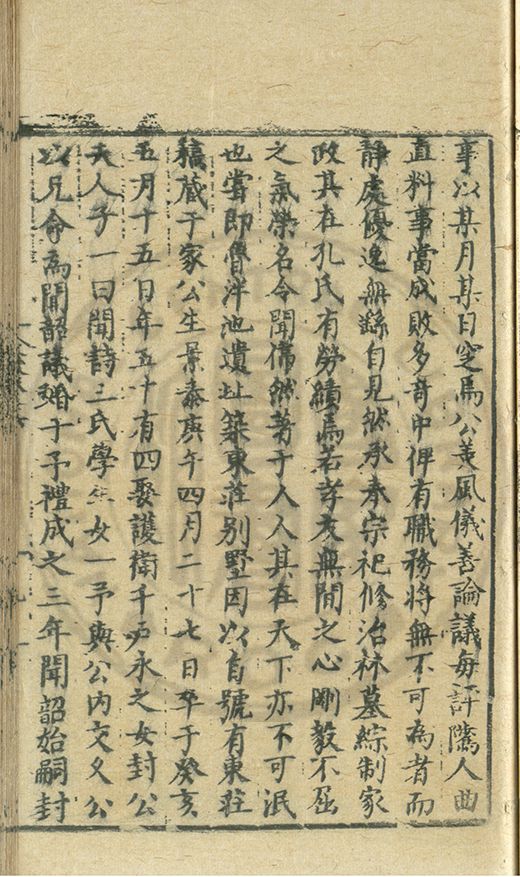 事以某月某日窆焉公美風儀善論議每評隲人曲
直料事當成敗多奇中俾有職務將無不可為者而
靜處優逸無繇自見然承奉宗祀修治林墓綜制家
政其在孔氏有勞績焉若孝友無間之心剛毅不屈
之氣榮名令聞偉然著于人人其在天下亦不可泯
也嘗即魯泮池遺址築東莊别墅因以自號有東莊
稿藏于家公生景泰庚午四月二十七日卒于癸亥
五月十五日年五十有四娶護衛千戶永之女封公
夫人子一曰聞詩三氏學生女一予與公内交久公
以兄命為聞韶議婚于予禮成之三年聞韶始嗣封